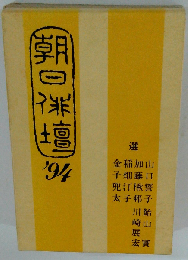 朝日俳壇
'76
選
山口誓子
加藤楸邨
稲畑汀子
金子兜太
川崎展宏